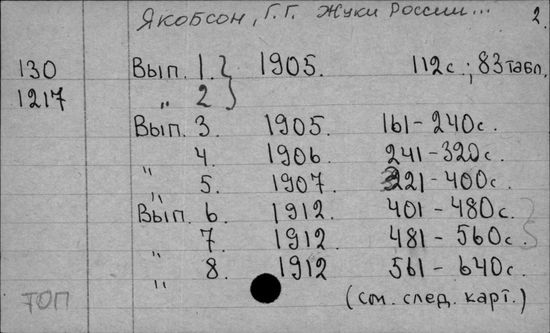 Якобсон, Г.Г. Жуки России... 2.
130 Вып. 1. } 1905. 112с.; 83 табл.
1217 „ 2 }
Вып. 3. 1905. 161-240с.
„ 4. 1906. 241-320с.
„ 5. 1907. 321-400с.
Вып. 6. 1912. 401-480с.
„ 7. 1912. 481-560с.
„ 8. 1912 561-640с.
ТОП (см. след. карт.)